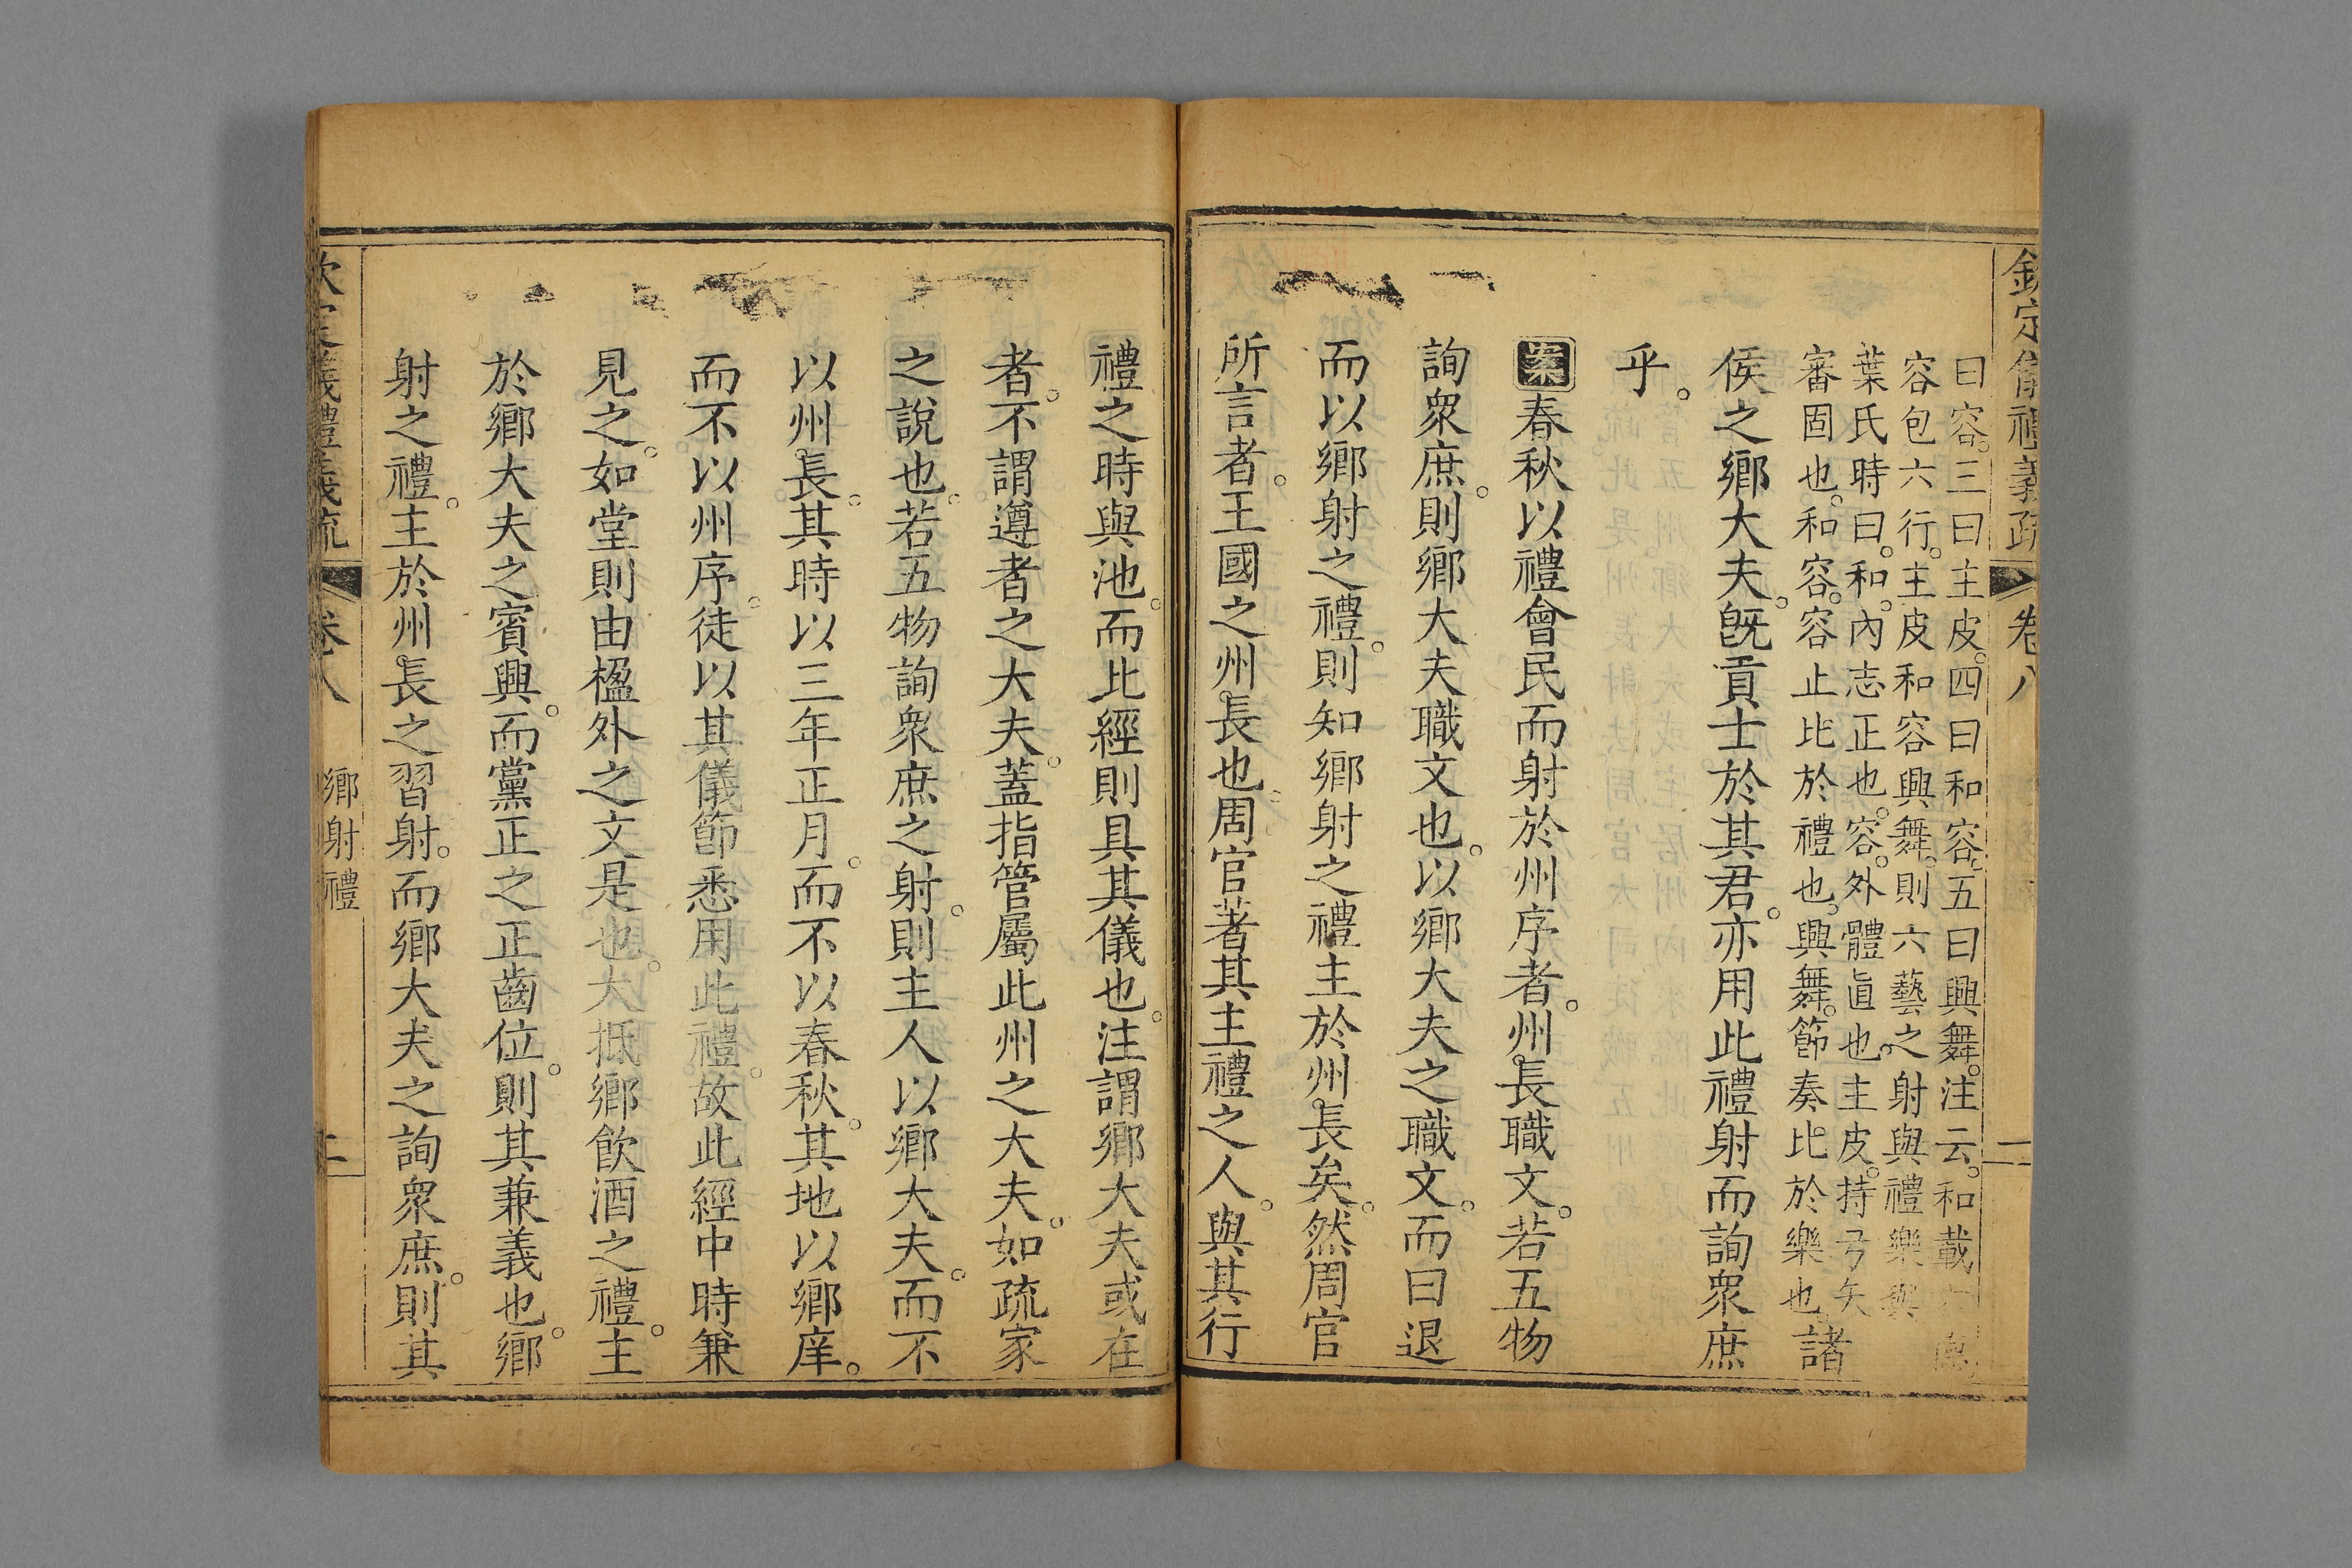 欽定儀禮義疏 卷八
曰容。三曰主皮。四曰和容。五曰興舞。注云。和載
容包六行。主皮和容興舞。則六藝之射與禮樂與
葉氏時曰。和。內志正也。容。外體直也。主皮。持弓矢
審固也。和容。容止比於禮也。興舞。節奏比於樂也。諸
侯之鄉大夫。旣貢士於其君。亦用此禮射而詢衆庶
乎。
案春秋以禮會民而射於州序者。州長職文。若五物
詢衆庶。則鄉大夫職文也。以鄉大夫之職文。而曰退
而以鄉射之禮。則知鄉射之禮主於州長矣。然周官
所言者。王國之州長也。周官著其主禮之人。與其行
禮之時與池。而此經則具其儀也。注謂鄉大夫或在
者。不謂遵者之大夫。蓋指管屬此州之大夫。如疏家
之說也。若五物詢衆庶之射。則主人以鄉大夫。而不
以州長。其時以三年正月。而不以春秋。其地以鄉庠。
而不以州序。徒以其儀節悉用此禮。故此經中時兼
見之。如堂則由楹外之文是也。大抵鄉飲酒之禮。主
於鄉大夫之賓興。而黨正之正齒位。則其兼義也。鄉
射之禮。主於州長之習射。而鄉大夫之詢衆庶。則其
欽定儀禮義疏 卷八 鄉射禮